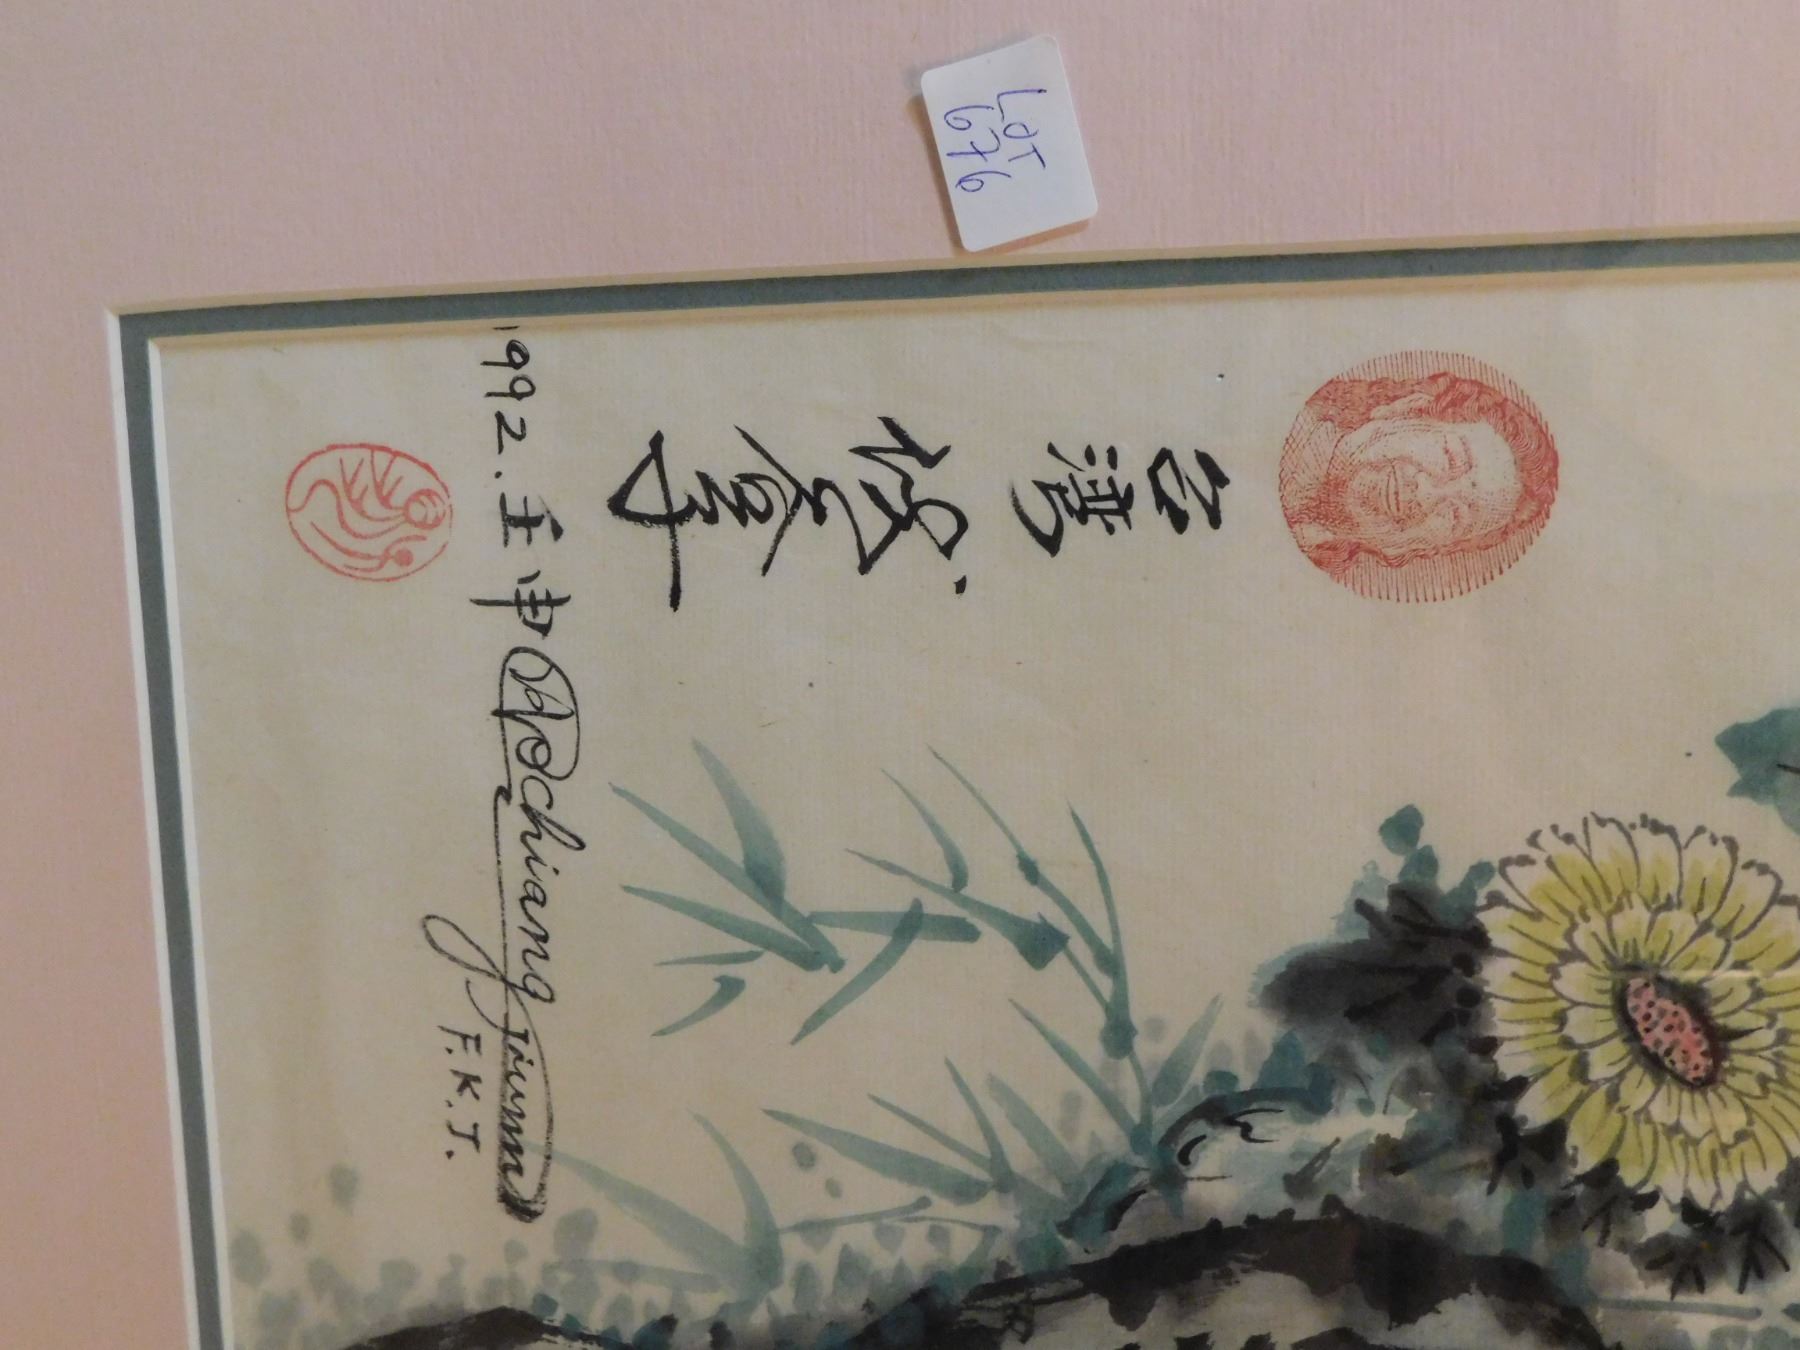 LOT
676
台灣
1992. 壬申 Hochiang Jiunn
F.K.J.